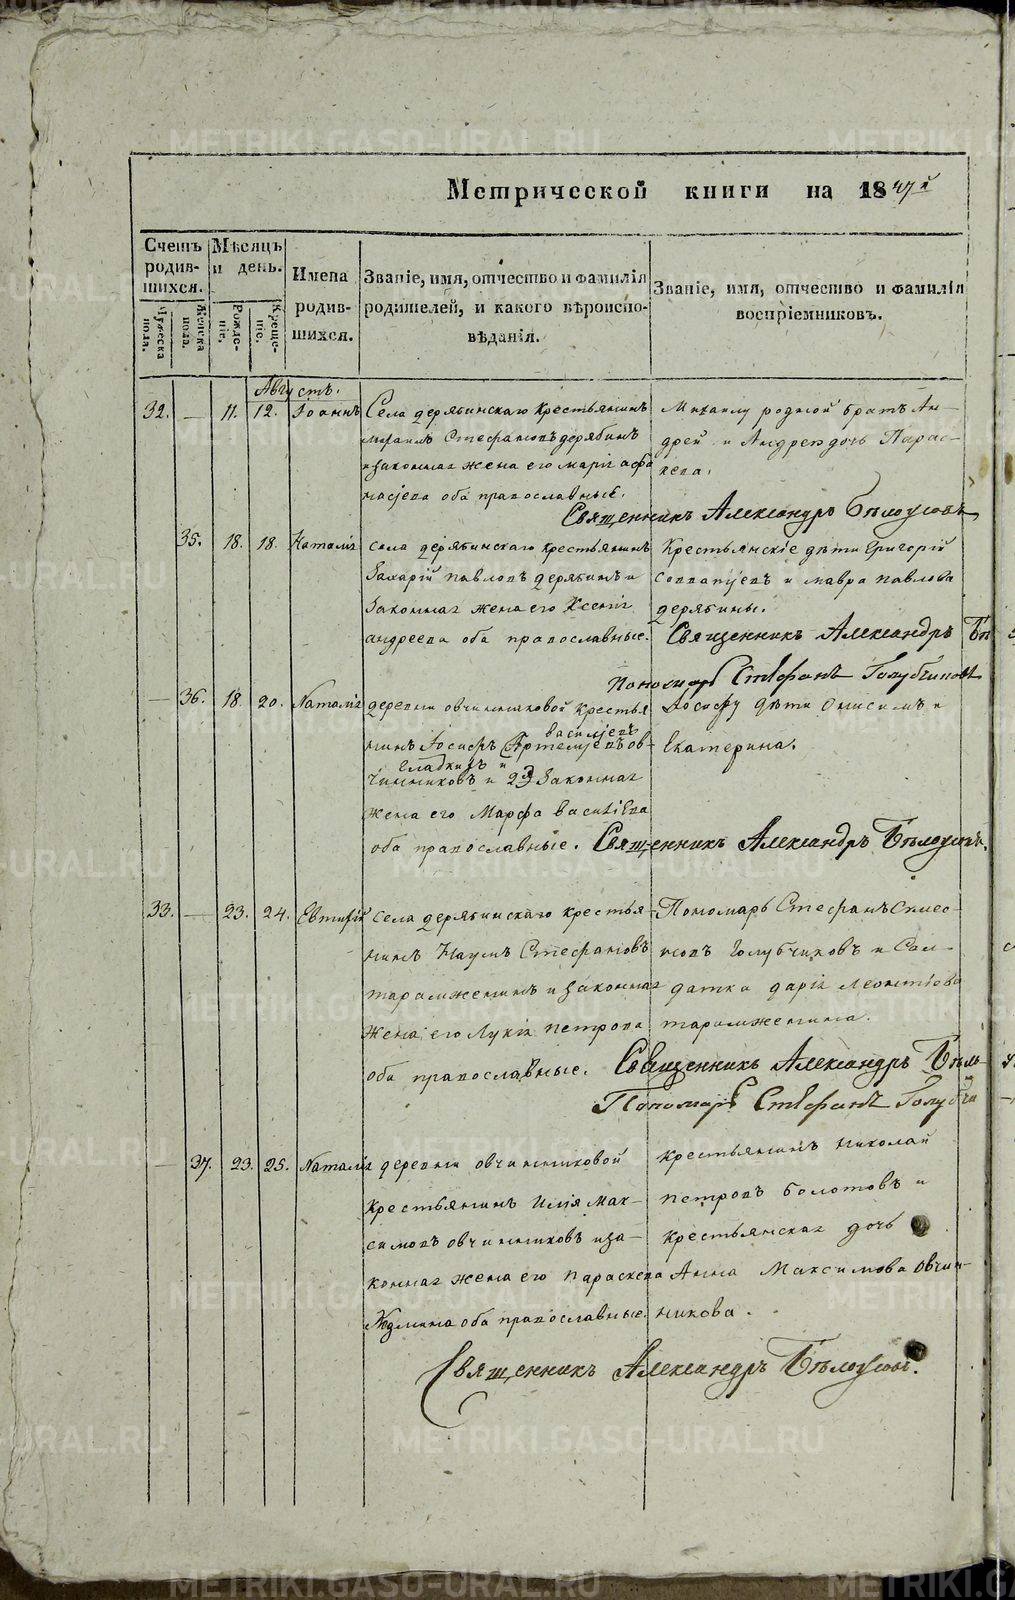 Метрической книги на 1847й
Счетъ родив-шихся.
Мѣсяцъ и день.
Имена родив-шихся.
Званіе, имя, отчество и фамилія родителей, и какого вѣроиспо-вѣданія.
Званіе, имя, отчество и фамилія воспріемниковъ.
Мужеска пола.
Женска пола.
Рожде-ніе.
Креще-ніе.
Августъ.
32. — 11. 12. Іоаннъ
Села дерябинскаго крестьянинъ
Стефановъ дерябинъ
и законная жена его марія афа
насјева оба православные.
Михаилу родной братъ Ан-
дрей и Андрея дочь Парас-
кева.
Священникъ Александръ Бѣлоусовъ
35. 18. 18. Наталія
села дерябинскаго крестьянинъ
Захарій павловъ дерябинъ и
Законная жена его Ксенія
андреева оба православные.
Крестьянскіе дѣти Григорій
и мавра павлова
дерябины.
Священникъ Александръ Бѣ
Пономарь Стефанъ Голубчиковъ
— 36. 18. 20. Наталія
деревни овчинниковой крестья
нинъ Іосифъ Артемјевъ ов-
василјевъ
Гладкихъ и
чинниковъ и 2я Законная
жена его Марфа василіева
оба православніе.
Іосифу дѣти Онисимъ и
Екатерина.
Священникъ Александръ Бѣлоусовъ.
33. — 23. 24. Евтихій
села дерябинскаго крестья-
нинъ Наумъ Стефановъ
таранжининъ и законная
жена его Лукія петрова
оба православные.
Пономарь Стефанъ Симео-
новъ Голубчиковъ и Сол-
датка дарія леонтіева
таранжинина.
Священникъ Александръ Бѣль
Пономарь Стефанъ Голубчи
— 37. 23. 25. Наталія
деревни овчинниковой
крестьянинъ Илія Мак-
симовъ овчинниковъ и за-
конная жена его параскева
Козмина оба православные.
крестьянинъ николай
петровъ болотовъ и
крестьянская дочь
Анна Максимова Овчин-
никова.
Священникъ Александръ Бѣлоусовъ.
METRIKI.GASO-URAL.RU